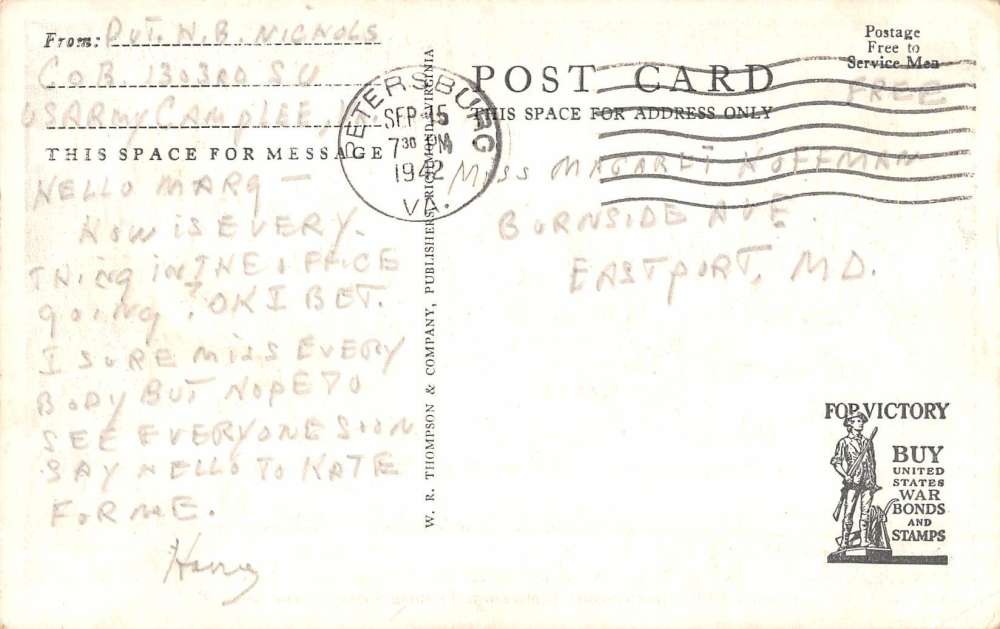 From: Pvt. H.B. NICHOLS
CO B. 1303RD SU
US ARMY CAMP LEE, VA.
THIS SPACE FOR MESSAGE
HELLO MARG —
HOW IS EVERY.
THING IN THE OFFICE
going, OK I BET.
I SURE MISS EVERY
BODY BUT HOPE TO
SEE EVERYONE SOON
SAY HELLO TO KATE
FOR ME.
Harry
PETERSBURG
SEP 15
7 30 PM
1942
VA.
W. R. THOMPSON & COMPANY, PUBLISHERS, RICHMOND, VIRGINIA
Postage
Free to
Service Men
FREE
POST CARD
THIS SPACE FOR ADDRESS ONLY
MISS MAGARET HOFFMAN
BURNSIDE AVE.
EASTPORT, MD.
FOR VICTORY
BUY
UNITED
STATES
WAR
BONDS
AND
STAMPS